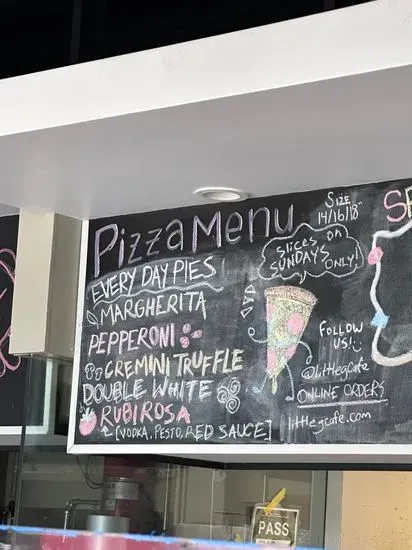 Pizza Menu
SIZE
14/16/18"
SLICES on
SUNDAYS
ONLY!
EVERY DAY PIES
MARGHERITA
PEPPERONI
CREMINI TRUFFLE
DOUBLE WHITE
RUBIROSA
[VODKA, PESTO, RED SAUCE]
FOLLOW
US!
@littlegcafe
ONLINE ORDERS
littlegcafe.com
SP
PASS